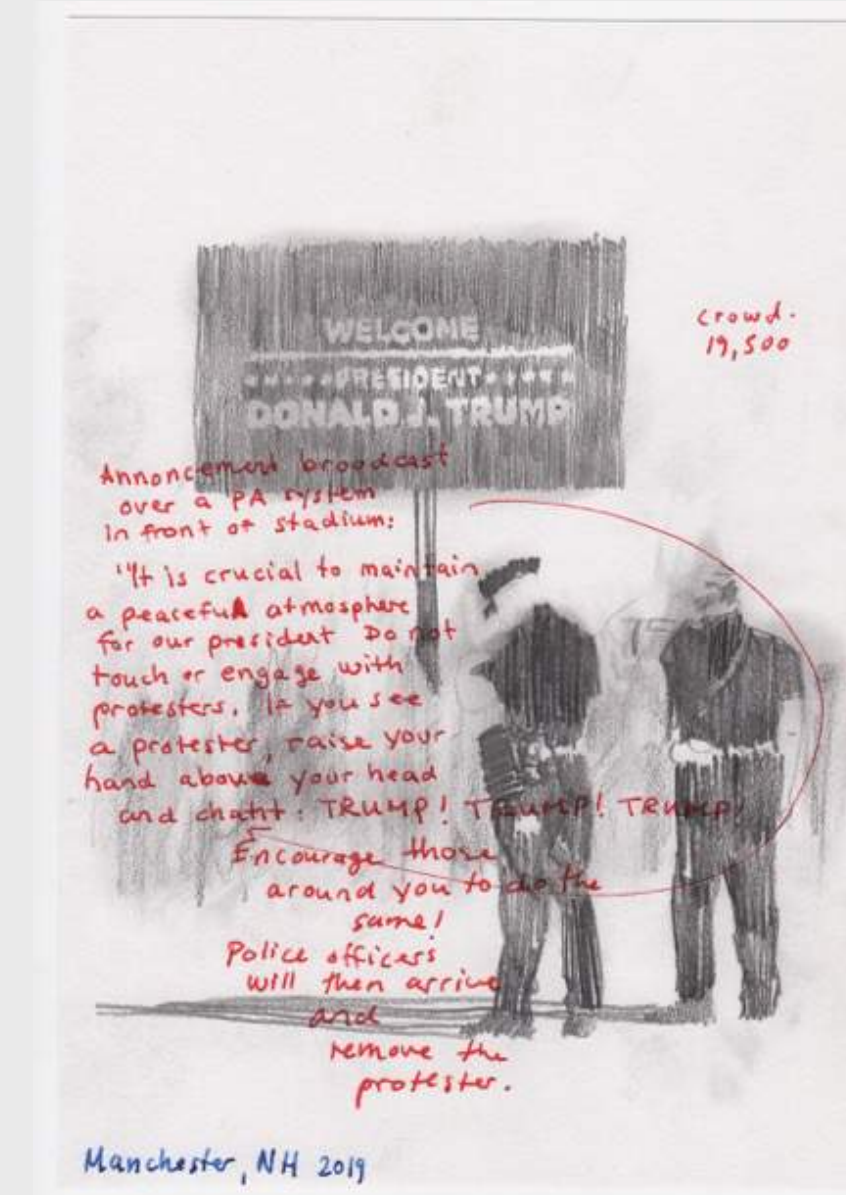 WELCOME
PRESIDENT
DONALD J. TRUMP
crowd.
19,500
Annoncement broadcast
over a PA system
In front of stadium:
"It is crucial to maintain
a peaceful atmosphere
for our president Do not
touch or engage with
protesters. If you see
a protester, raise your
hand above your head
and chant: TRUMP! TRUMP! TRUMP!
Encourage those
around you to do the
same!
Police officers
will then arrive
and
remove the
protester.
Manchester, NH 2019